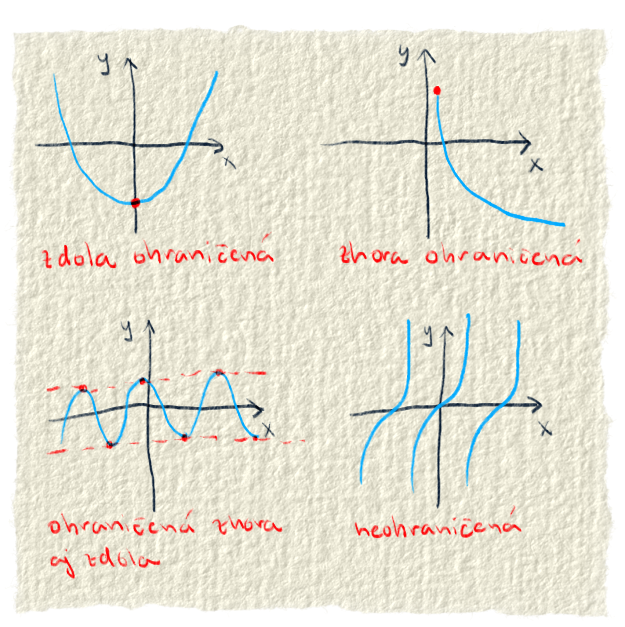 y
x
zdola ohraničená
y
x
zhora ohraničená
y
x
ohraničená zhora
aj zdola
y
x
neohraničená